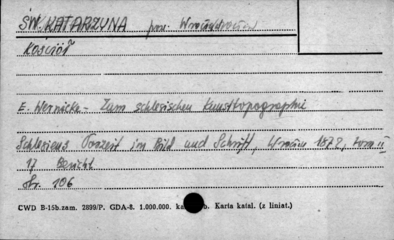 ŚW. KATARZYNA pow. Wrocław
Kościół
E. Wernicke - Zum schlesischen Kunsttopographie
Schlesiens Vorzeit im Bild und Schrift, Wrocław 1872, tom II
17 Bericht
Str. 106
CWD B-15b.zam. 2899/P. GDA-8. 1.000.000. ka b. Karta katal. (z liniat.)